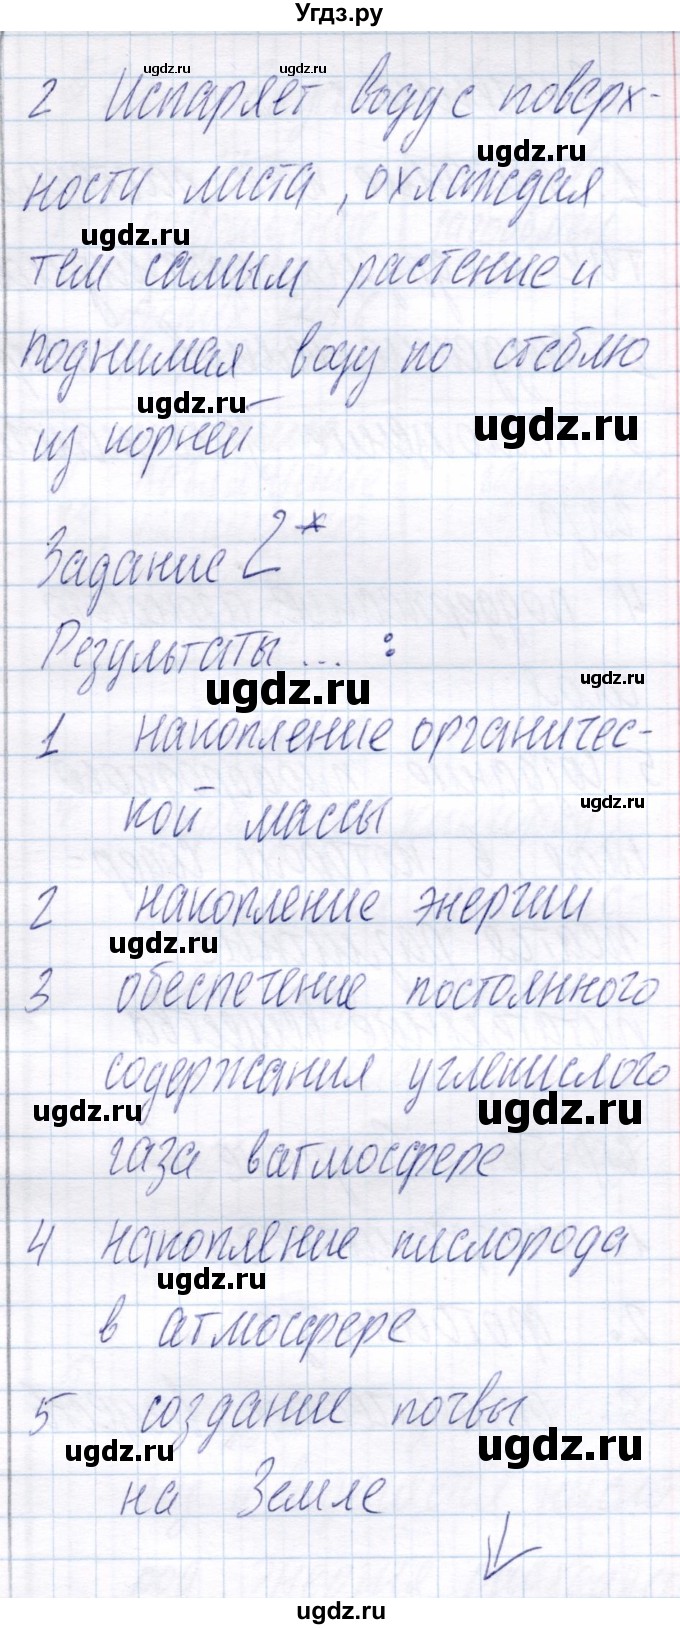 Угдз.ру
ugdz.ru ugdz.ru
2 Испаряет воду с поверх-
ugdz.ru
ности листа, охлаждая
ugdz.ru
тем самым растение и
поднимая воду по стеблю
ugdz.ru ugdz.ru
из корней
Задание 2*
Результаты ... :
ugdz.ru ugdz.ru
1 накопление органичес-
ugdz.ru
кой массы
2 накопление энергии
ugdz.ru
3 обеспечение постоянного
содержания углекислого
ugdz.ru ugdz.ru
газа в атмосфере
4 накопление кислорода
ugdz.ru
в атмосфере
5 создание почвы
ugdz.ru ugdz.ru
на Земле
ugdz.ru